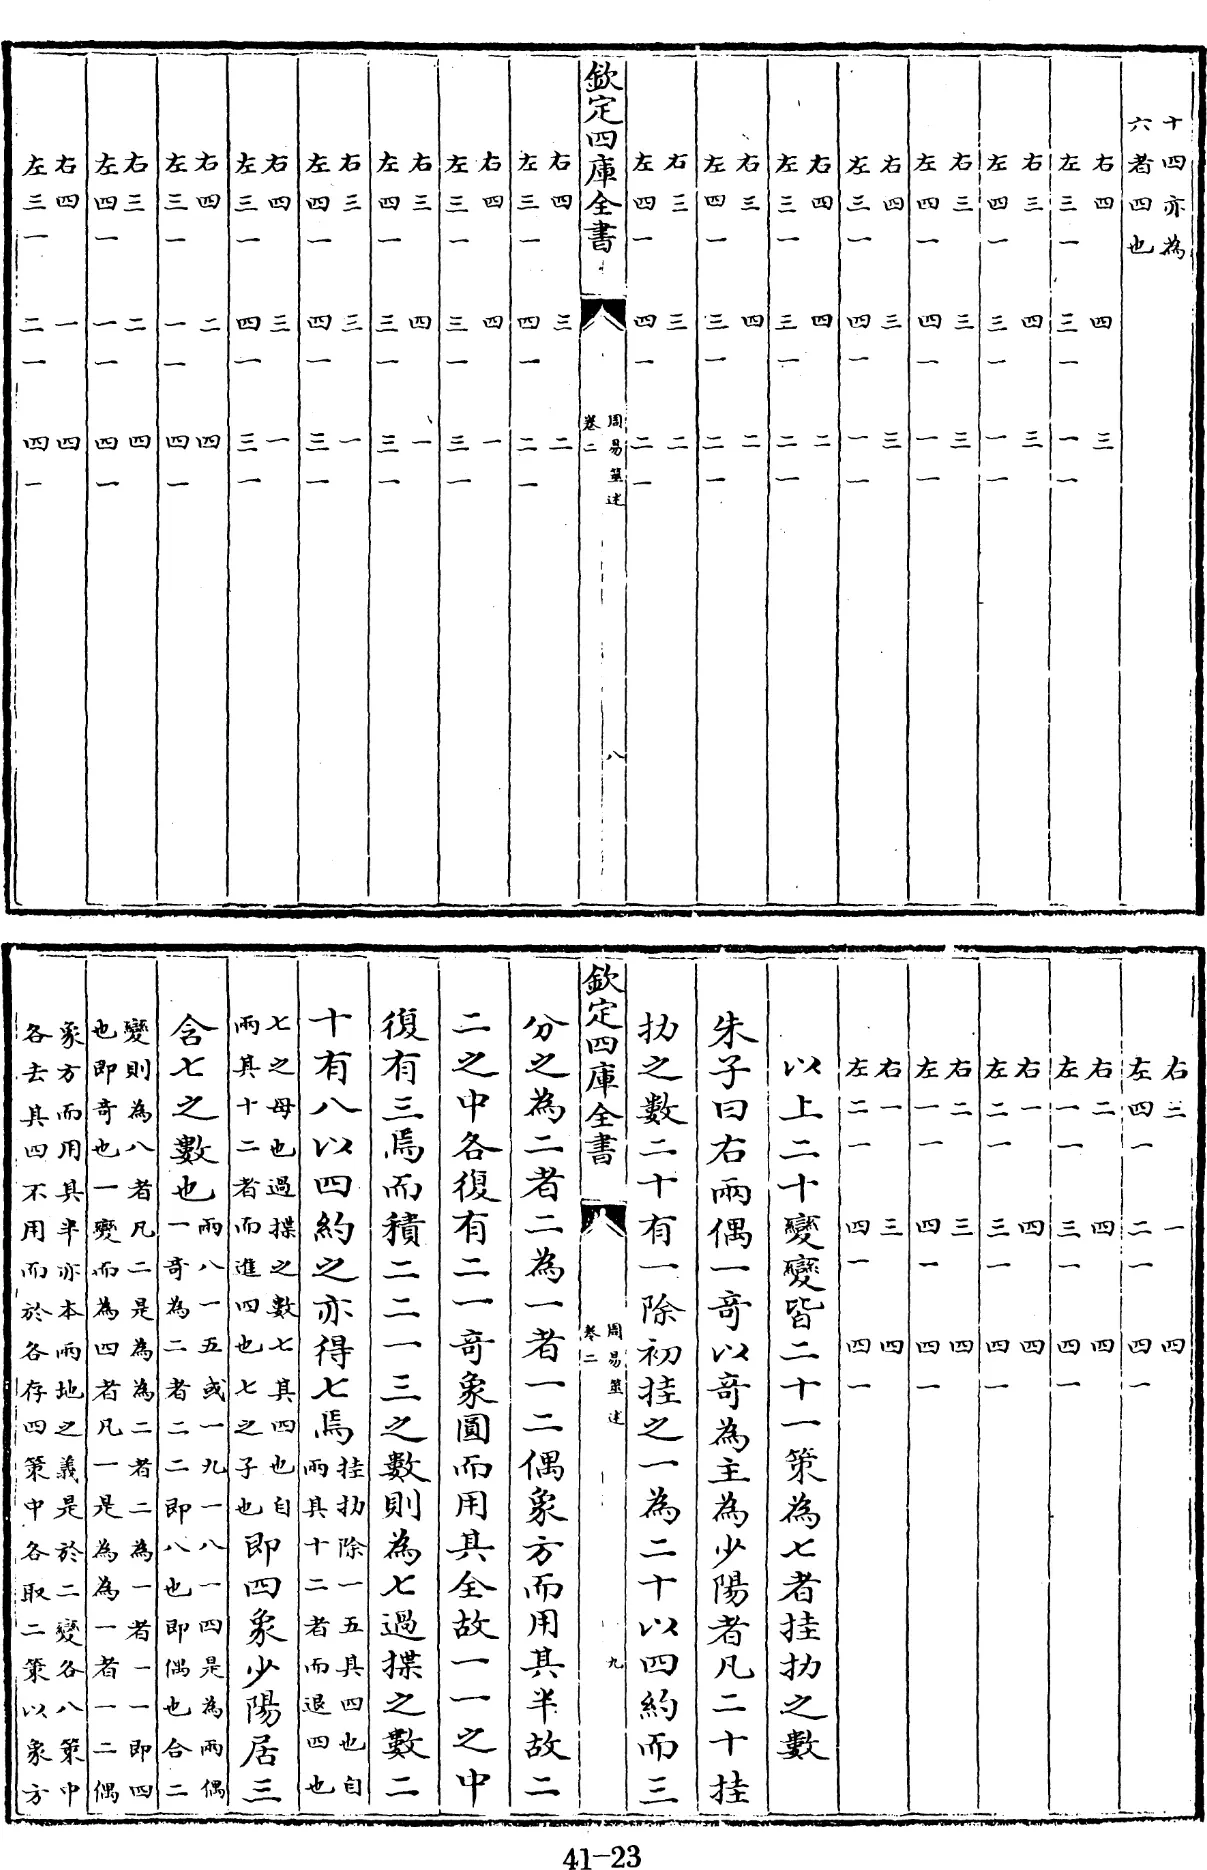 十四亦為
六者四也
右四 四 三
左三一 三一 一一
右三 四 三
左四一 三一 一一
右三 三 三
左四一 四一 一一
右四 三 三
左三一 四一 一一
右四 四 二
左三一 三一 二一
右三 四 二
左四一 三一 二一
右三 三 二
左四一 四一 二一
欽定四庫全書
周易筮述
卷二
八
右四 三 二
左三一 四一 二一
右四 四 一
左三一 三一 三一
右三 四 一
左四一 三一 三一
右三 三 一
左四一 四一 三一
右四 三 一
左三一 四一 三一
右四 二 四
左三一 一一 四一
右三 二 四
左四一 一一 四一
右四 一 四
左三一 二一 四一
右三 一 四
左四一 二一 四一
右二 四 四
左一一 三一 四一
右一 四 四
左二一 三一 四一
右二 三 四
左一一 四一 四一
右一 三 四
左二一 四一 四一
以上二十變變皆二十一策為七者挂扐之數
朱子曰右兩偶一奇以奇為主為少陽者凡二十挂
扐之數二十有一除初挂之一為二十以四約而三
欽定四庫全書
周易筮述
卷二
九
分之為二者二為一者一二偶象方而用其半故二
二之中各復有二一奇象圓而用其全故一一之中
復有三焉而積二二一三之數則為七過揲之數二
十有八以四約之亦得七焉
挂扐除一五其四也自
兩其十二者而退四也
七之母也過揲之數七其四也自
兩其十二者而進四也七之子也
即四象少陽居三
含七之數也
兩八一五或一九一八一四是為兩偶
一奇為二者二二即八也即偶也合二
變則為八者凡二是為為二者二為一者一一即四
也即奇也一變而為四者凡一是為為一者一二偶
象方而用其半亦本兩地之義是於二變各八策中
各去其四不用而於各存四策中各取二策以象方
41-23